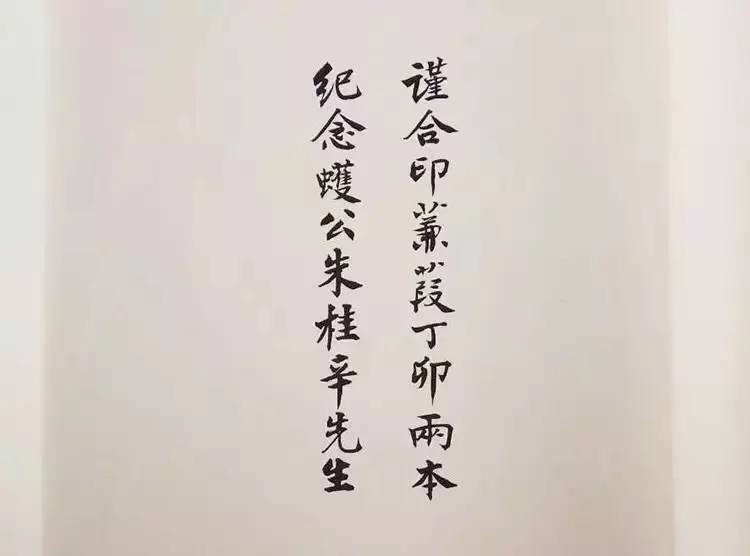 谨合印蒹葭丁卯兩本
纪念蠖公朱桂辛先生